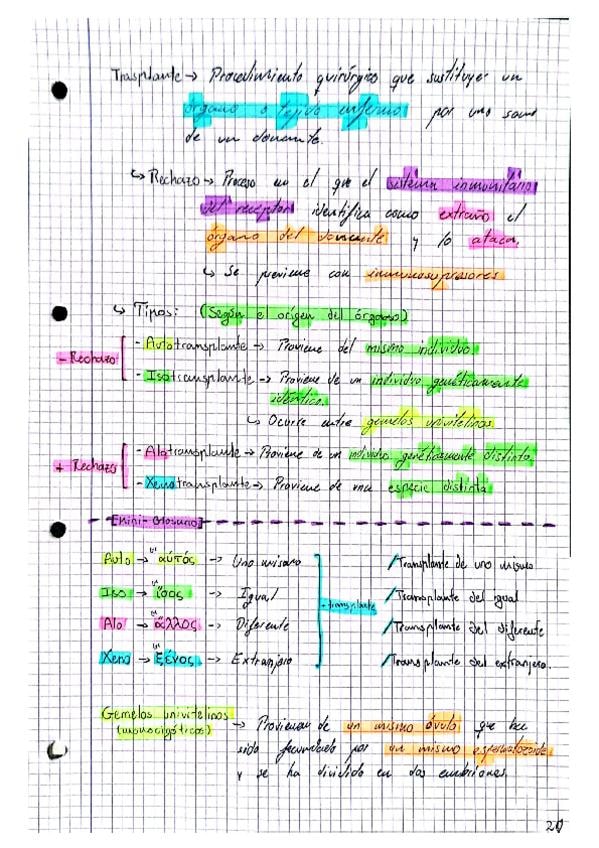 Trasplante → Procedimiento quirúrgico que sustituye un
órgano o tejido enfermo por uno sano
de un donante.
↳ Rechazo → Proceso en el que el sistema inmunitario
del receptor identifica como extraño el
órgano del donante y lo ataca.
↳ Se previene con inmunosupresores
↳ Tipos: (Según el origen del órgano)
- Rechazo
- Autotransplante → Proviene del mismo individuo.
- Isotransplante → Proviene de un individuo genéticamente
idéntico.
↳ Ocurre entre gemelos univitelinos
+ Rechazo
- Alotransplante → Proviene de un individuo genéticamente distinto
- Xenotransplante → Proviene de una especie distinta
[Mini-Glosario]
Auto → αὐτός → Uno mismo
Iso → ἴσος → Igual
Alo → ἄλλος → Diferente
Xeno → ξένος → Extranjero
- transplante
/Transplante de uno mismo
/Transplante del igual
/Transplante del diferente
/Transplante del extranjero.
Gemelos univitelinos
(monocigóticos)
→ Provienen de un mismo óvulo que ha
sido fecundado por un mismo espermatozoide
y se ha dividido en dos embriones.
20